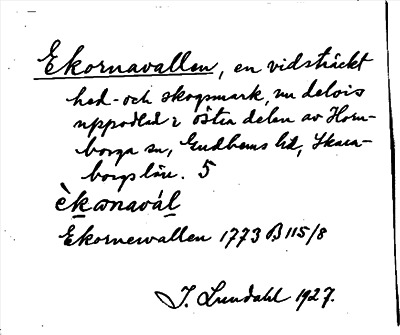 Ekornavallen, en vidsträckt
hed- och skogsmark, nu delvis
uppodlad i östra delen av Horn-
borga sn, Gudhems hd, Skara-
borgs län. 5
èkɷnavál
Ekornewallen 1773 B 115/8
I. Lundahl 1927.